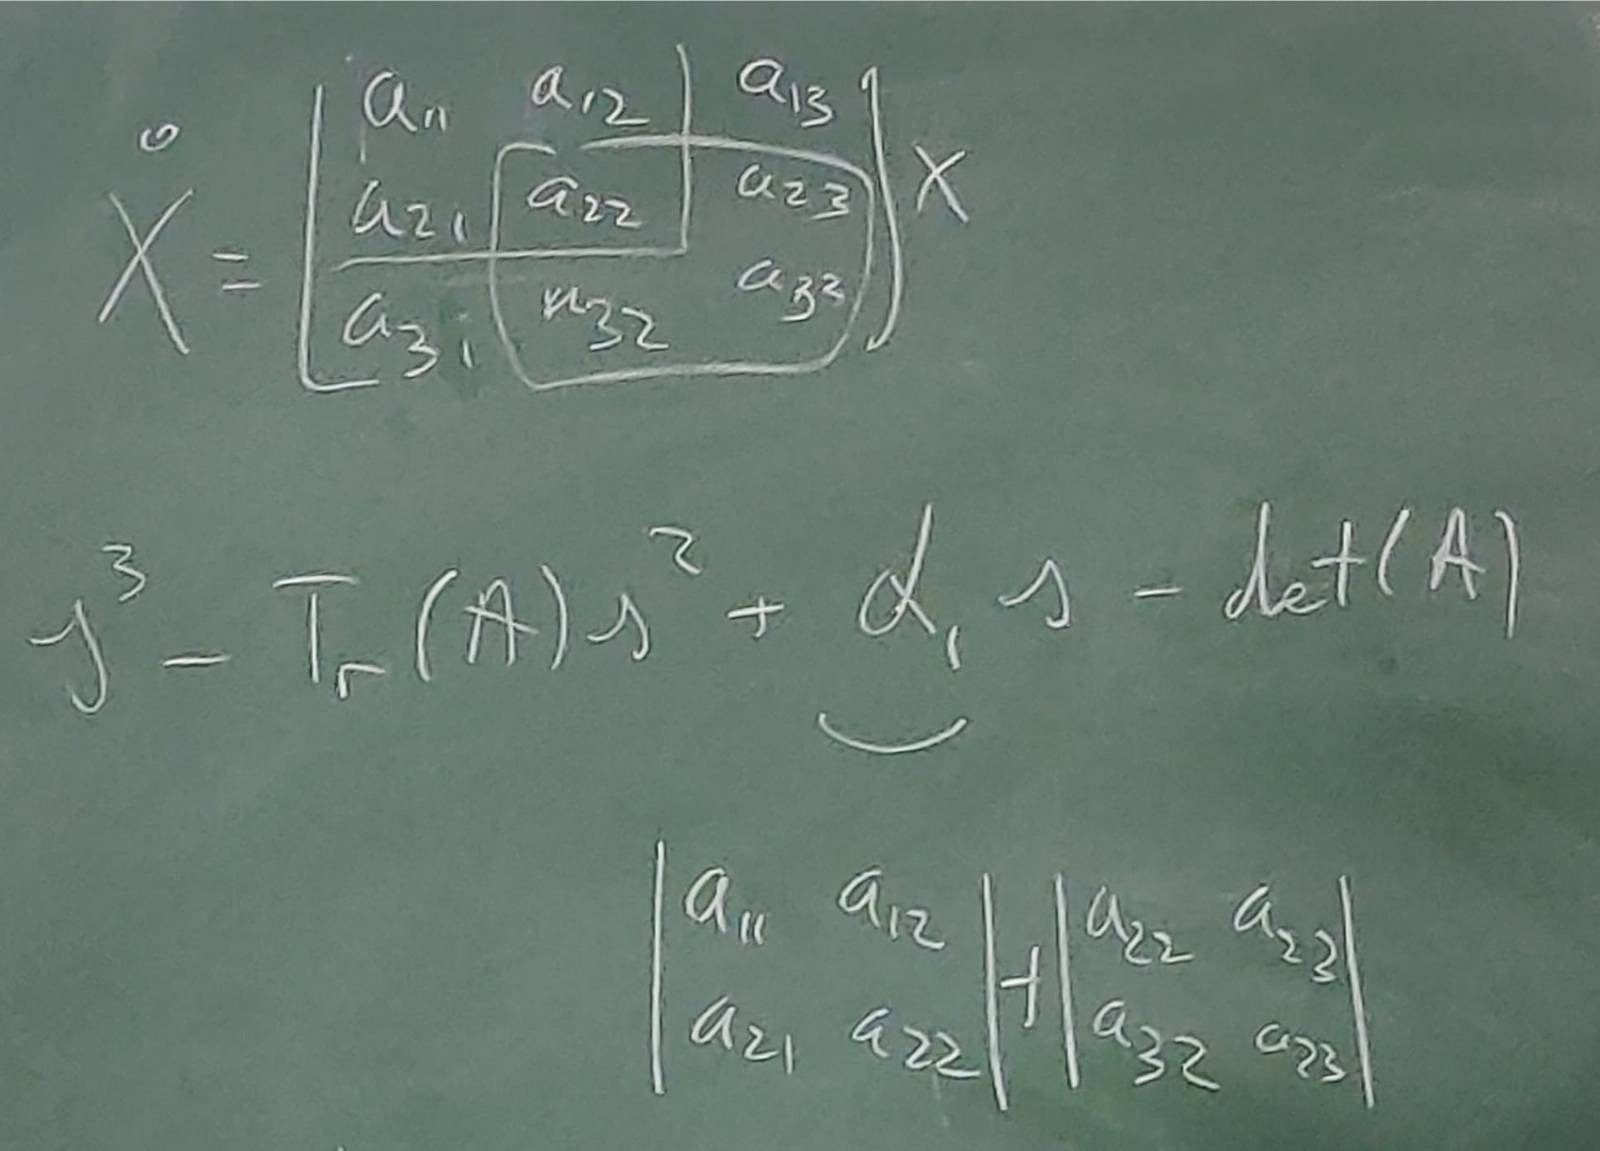 Ẋ = [ a11 a12 a13
a21 a22 a23
a31 a32 a32 ] X
s³ - Tr(A)s² + α1 s - det(A)
| a11 a12 | + | a22 a23 |
| a21 a22 | | a32 a23 |